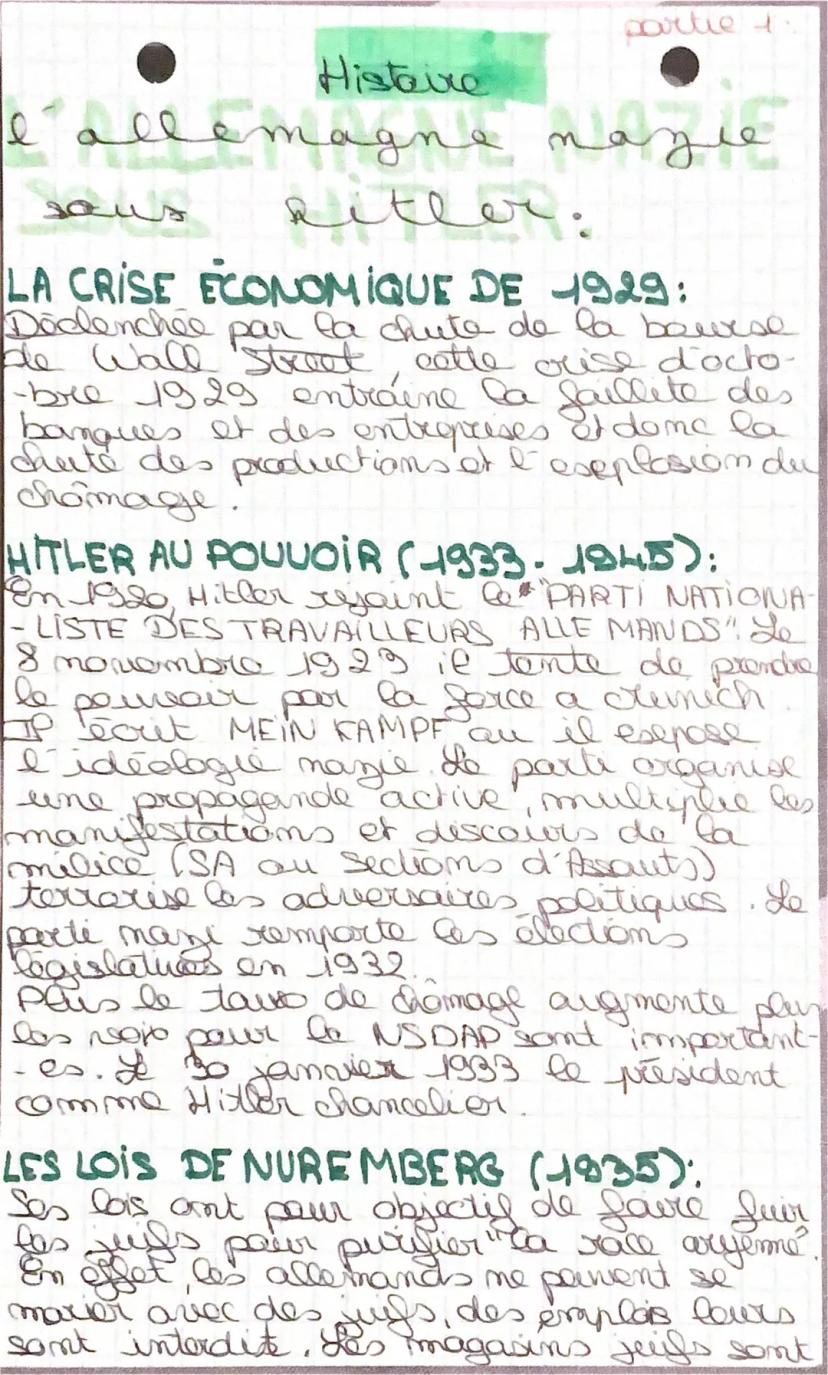 partie 1:
Histoire
L'ALLEMAGNE NAZIE
l'allemagne nazie
SOUS HITLER:
sous hitler:
LA CRISE ÉCONOMIQUE DE 1929:
Déclenchée par la chute de la bourse
de Wall Street, cette crise d'octo-
-bre 1929 entraîne la faillite des
banques et des entreprises et donc la
chute des productions et l'explosion du
chômage.
HITLER AU POUVOIR (1933-1945):
En 1920, Hitler rejoint le "PARTI NATIONA-
-LISTE DES TRAVAILLEURS ALLEMANDS". Le
8 novembre 1923 il tente de prendre
le pouvoir par la force a Munich.
Il écrit MEIN KAMPF ou il expose
l'idéologie nazie. Le parti organise
une propagande active, multiplie les
manifestations et discours de la
milice (SA ou sections d'Assauts))
terrorise les adversaires politiques. Le
parti nazi remporte les élections
législatives en 1932.
Plus le taux de chômage augmente plus
les voix pour le NSDAP sont important-
-es. Le 30 janvier 1933 le président
comme Hitler chancelier.
LES LOIS DE NUREMBERG (1935):
Ses lois ont pour objectif de faire fuir
les juifs pour purifier "la race aryenne".
En effet, les allemands ne peuvent se
marier avec des juifs, des emplois leurs
sont interdit. Les magasins juifs sont